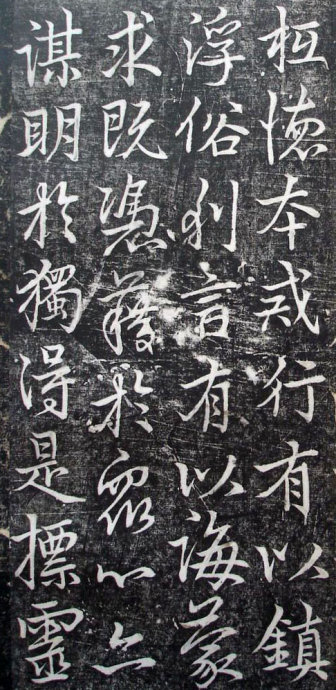 德本戒行有以鎮
浮俗利言有以誨蒙
求既憑藉於眾心亦
謀明於獨得是標靈